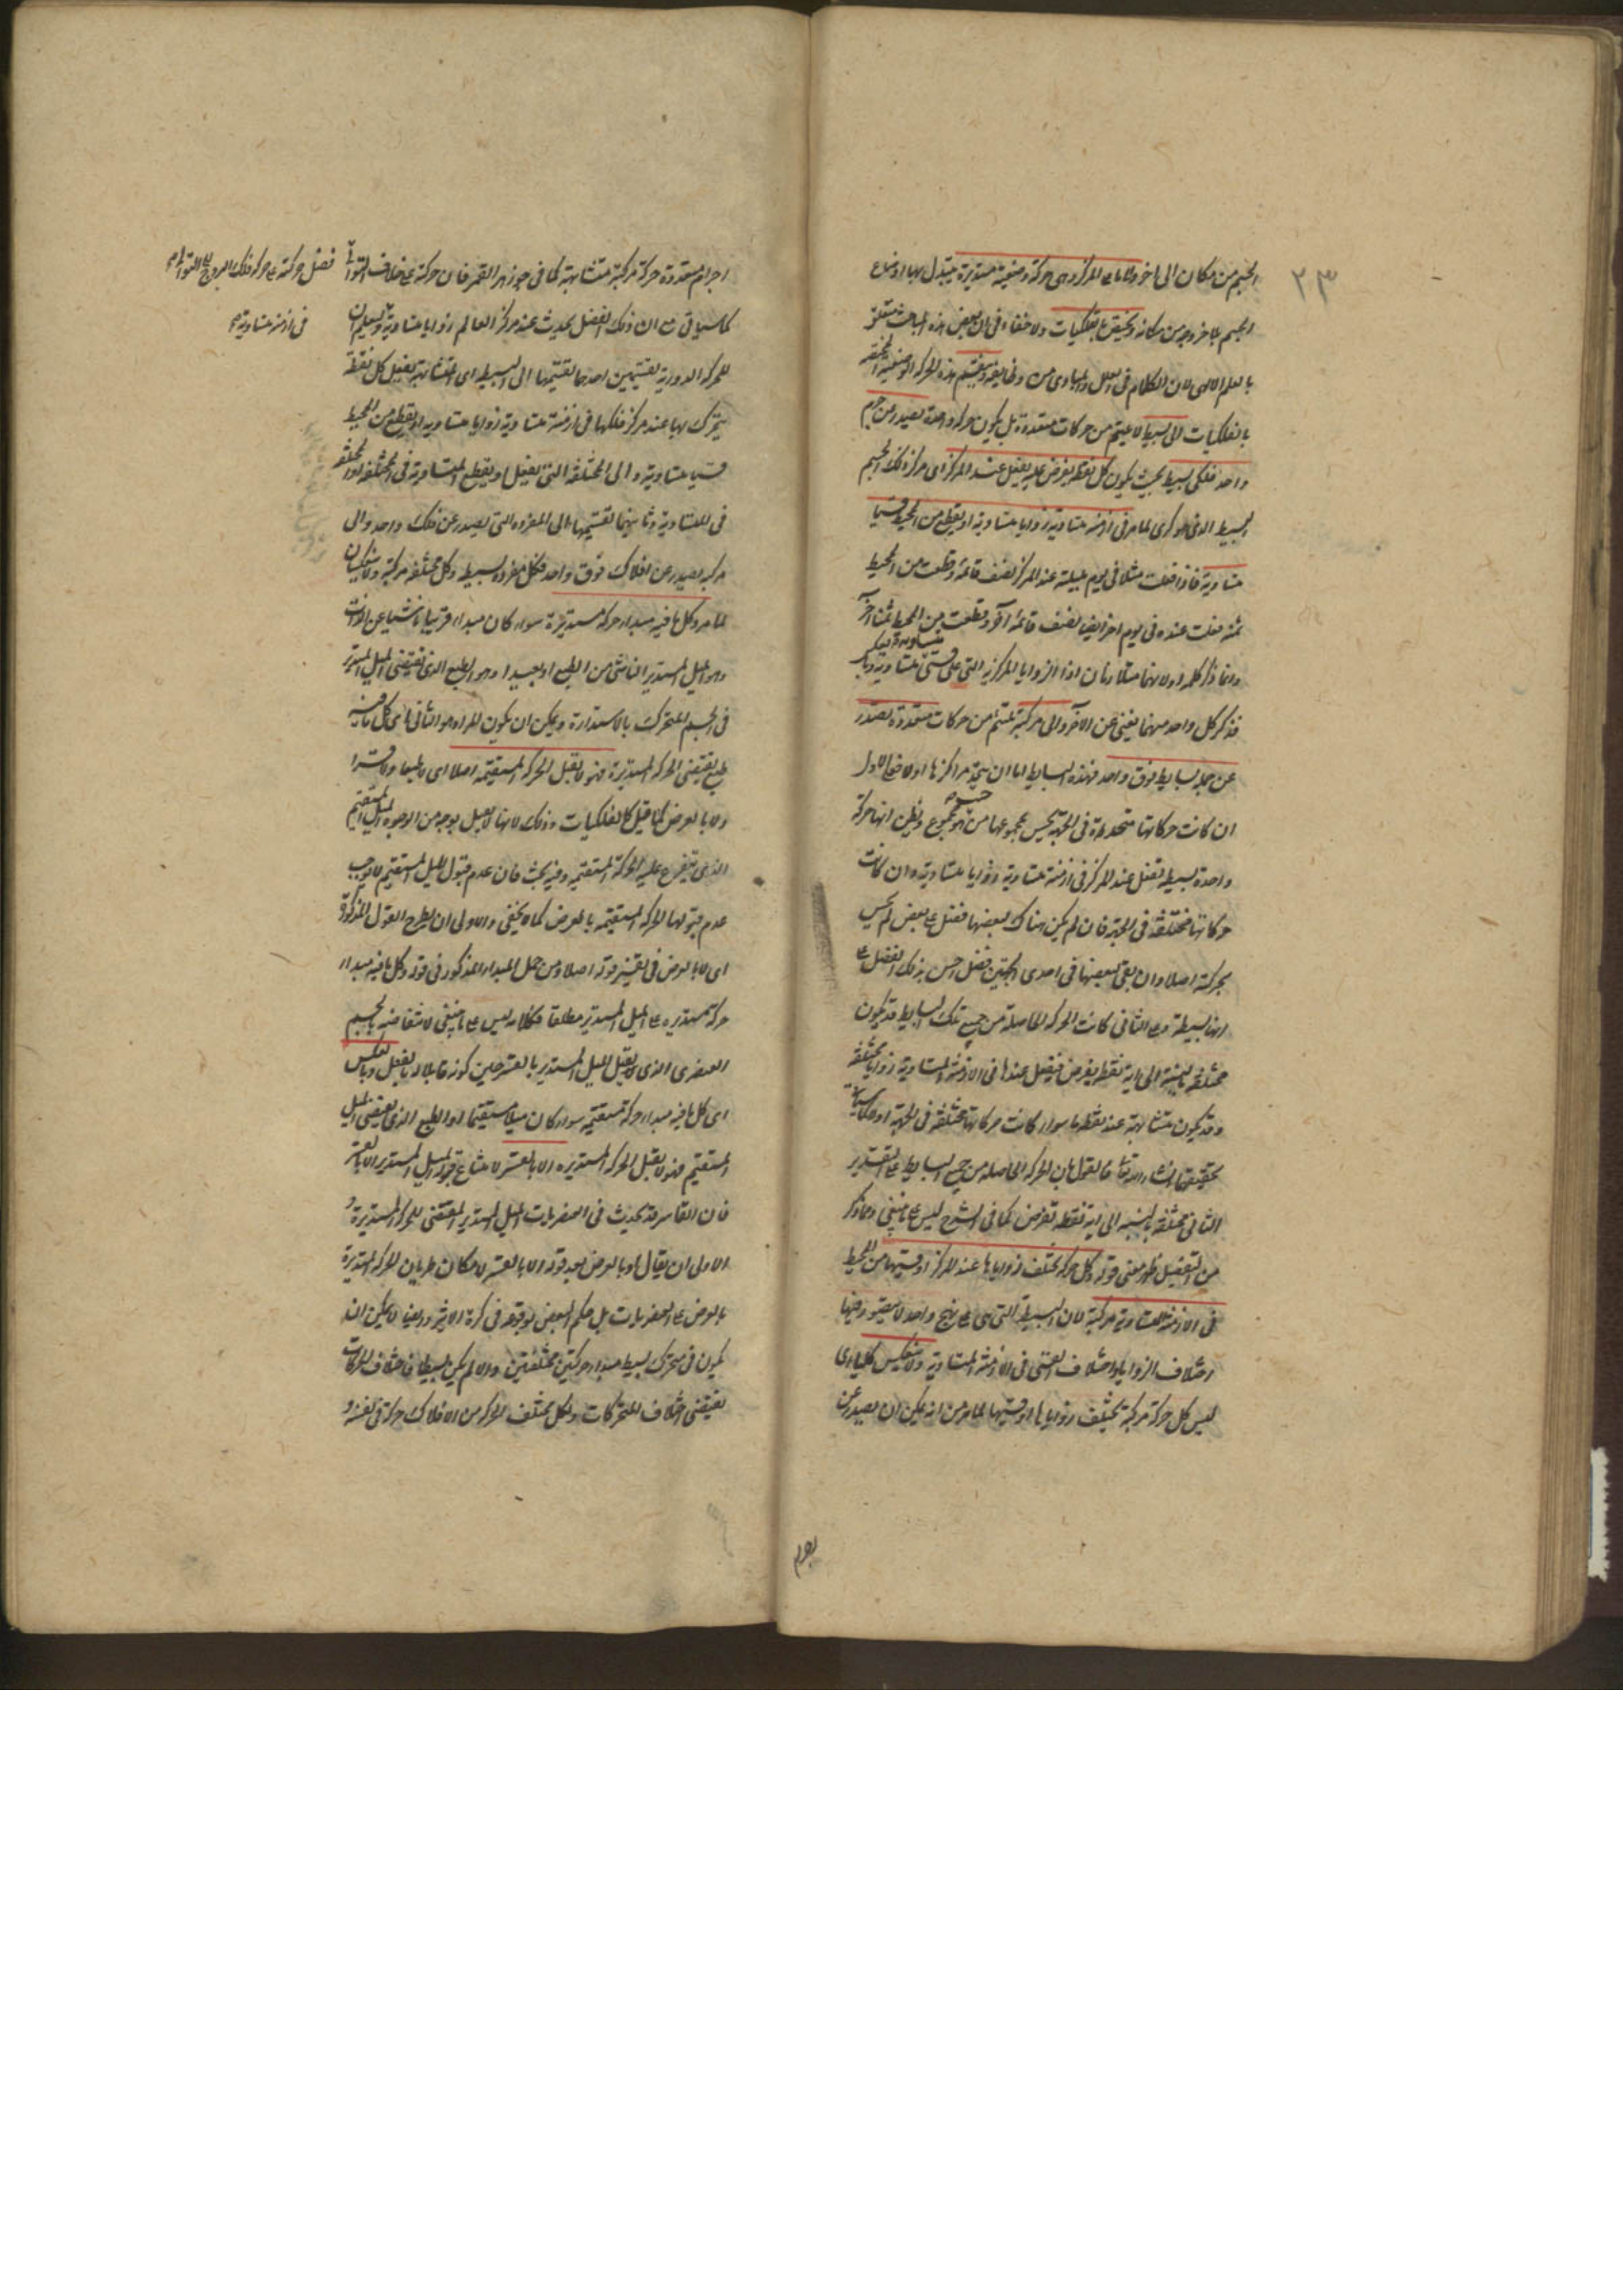 ٢٣
الجسم من مكان الى اخر واما على المركز وهى حركة وضعية مستديرة يتبدل بها اوضاع
الجسم بلا خروجه من مكانه ويختص بالفلكيات ولا خفاء فى ان بعض هذه المباحث متعلق
بالعلم الالهى لان الكلام فى العلل والمبادى من وظايفه وينقسم هذه الحركة الوضعية المختصة
بالفلكيات الى بسيطة لا يلتئم من حركات متعددة بل يكون حركة واحدة يصدر من جرم
واحد فلكى بسيط بحيث يكون كل نقطة يفرض عليه يفعل عند المركز اى مركز ذلك الجسم
البسيط الذى هو كرى لما مر فى ازمنة متساوية زوايا متساوية او يقطع من المحيط قسيا
متساوية فاذا فعلت مثلا فى يوم بليلة عند المركز نصف قائمة وقطعت من المحيط
ثمنه فعلت عنده فى يوم اخر ايضا نصف قائمة اخرى وقطعت من المحيط ثمنا اخر
وانما ذكر كلمة او لانهما متلازمان اذ الزوايا المركزية التى على قسى متساوية متساوية وبالعكس
فذكر كل واحد منهما يغنى عن الاخر والى مركبة تلتئم من حركات متعددة تصدر
عن جملة بسايط فوق واحد فهذه البسايط اما ان يتحد مراكزها او لا فعلى الاول
ان كانت حركاتها متحدة فى الجهة يحس مجموعها من حيث هو مجموع ويظن انها حركة
واحدة بسيطة تفعل عند المركز فى ازمنة متساوية زوايا متساوية وان كانت
حركاتها مختلفة فى الجهة فان لم يكن هناك لبعضها فضل على بعض لم يحس
بحركة اصلا وان بقى لبعضها فى احدى الجهتين فضل احس بذلك الفضل على
انها بسيطة وعلى الثانى كانت الحركة الحاصلة من جميع تلك البسايط قد يكون
مختلفة بالنسبة الى اية نقطة يفرض فيفعل عندها فى الازمنة المتساوية زوايا مختلفة
وقد يكون متشابهة عند نقطة ما سواء كانت حركاتها مختلفة فى الجهة او
تحقيقها ان شاء الله تعالى فالقول بان الحركة الحاصلة من جميع البسايط على التقدير
الثانى مختلفة بالنسبة الى اية نقطة تفرض كما فى الشرح ليس على ما ينبغى ومما ذكر
من التفصيل ظهر معنى قوله وكل حركة تختلف زواياها عند المركز او قسيها من المحيط
فى الازمنة المتساوية مركبة لان البسيطة التى هى على نهج واحد لا يتصور فيها
اختلاف الزوايا واختلاف القسى فى الازمنة المتساوية ولا ينعكس كليا اى
ليس كل حركة مركبة تختلف زواياها او قسيها لما مر من انه يمكن ان يصدر عن
اجرام متعددة حركة مركبة متشابهة كما فى جوزهر القمر فان حركته على خلاف التوالى
فضل حركته على حركة فلك البروج الى التوالى
كما سياتى مع ان ذلك الفضل يحدث عند مركز العالم زوايا متساوية وليعلم ان
فى ازمنة متساوية
للحركة الدورية تقسيمين احدهما تقسيمها الى البسيطة اى المتشابهة يفعل كل نقطة
يتحرك بها عند مركز فلكها فى ازمنة متساوية زوايا متساوية او يقطع من المحيط
قسيا متساوية والى المختلفة التى يفعل او يقطع المتساوية فى المختلفة او المختلفة
فى المتساوية وثانيهما تقسيمها الى المفردة التى يصدر عن فلك واحد والى
مركبة يصدر عن افلاك فوق واحد فكل مفردة بسيطة وكل مختلفة مركبة ولا ينعكسان
لما مر وكل ما فيه مبداء حركة مستديرة سواء كان مبداء قريبا ناشيا عن الذات
وهو الميل المستدير الناشى من الطبع او بعيدا وهو الطبع الذى يقتضى الميل المستدير
فى الجسم المتحرك بالاستدارة ويمكن ان يكون المراد هو الثانى اى كل ما فيه
طبع يقتضى الحركة المستديرة فهو لا يقبل الحركة المستقيمة اصلا اى لا طبعا ولا قسرا
ولا بالعرض كما قيل كالفلكيات وذلك لانها لا يميل بوجه من الوجوه الميل المستقيم
الذى يتفرع عليه الحركة المستقيمة وفيه بحث فان عدم قبول الميل المستقيم لا يوجب
عدم قبولها الحركة المستقيمة بالعرض كما لا يخفى والاولى ان يطرح القول المذكور
اى لا بالعرض فى تفسير قوله اصلا ومن حمل المبداء المذكور فى قوله وكل ما فيه مبداء
حركة مستديرة على الميل المستدير مطلقا فكلامه ليس على ما ينبغى لانتقاضه بالجسم
العنصرى الذى يقبل الميل المستدير بالقسر حين كونه قابلا له بالفعل وبالعكس
اى كل ما فيه مبداء حركة مستقيمة سواء كان ميلا مستقيما او الطبع الذى يقتضى الميل
المستقيم فهو لا يقبل الحركة المستديرة الا بالقسر لامتناع قبول الميل المستدير الا بالقسر
فان القاسر قد يحدث فى العنصريات الميل المستدير المقتضى للحركة المستديرة و
الاولى ان يقال او بالعرض بعد قوله الا بالقسر لامكان طريان الحركة المستديرة
بالعرض على العنصريات بل حكم البعض بوقوعه فى كرة الاثير وايضا لا يمكن ان
يكون فى متحرك بسيط مبداء حركتين مختلفتين والا لم يكن بسيطا فاختلاف الحركات
يقتضى اختلاف المتحركات ولكل مختلف الحركة من الافلاك حركة فى نفسه و